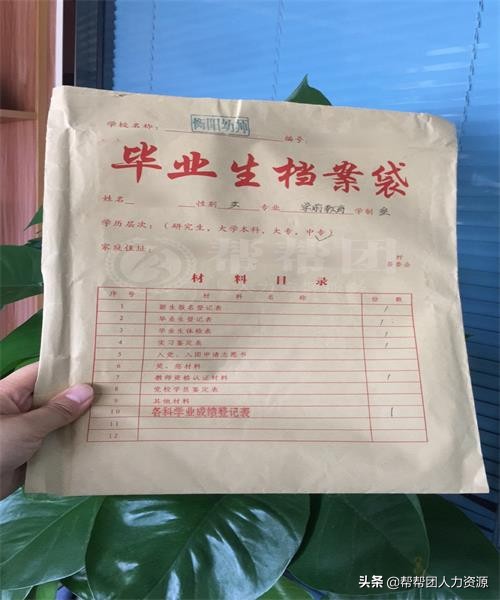 学校名称: 衡阳幼师 编号:
毕业生档案袋
姓名 性别 女 专业 学前教育 学制 叁
学历层次:(研究生,大学本科,大专,中专✓)
家庭住址: 村
居委会
帮帮团
材料目录
序号 材料名称 份数
1 新生报名登记表 1
2 毕业生登记表 1
3 毕业生体检表 1
4 实习鉴定表 1
5 入党、入团申请志愿书
6 奖、惩材料
7 教师资格认证材料 1
8 党校学员鉴定表
9 其他材料
10 各科学业成绩登记表 1
11
12
头条 @帮帮团人力资源